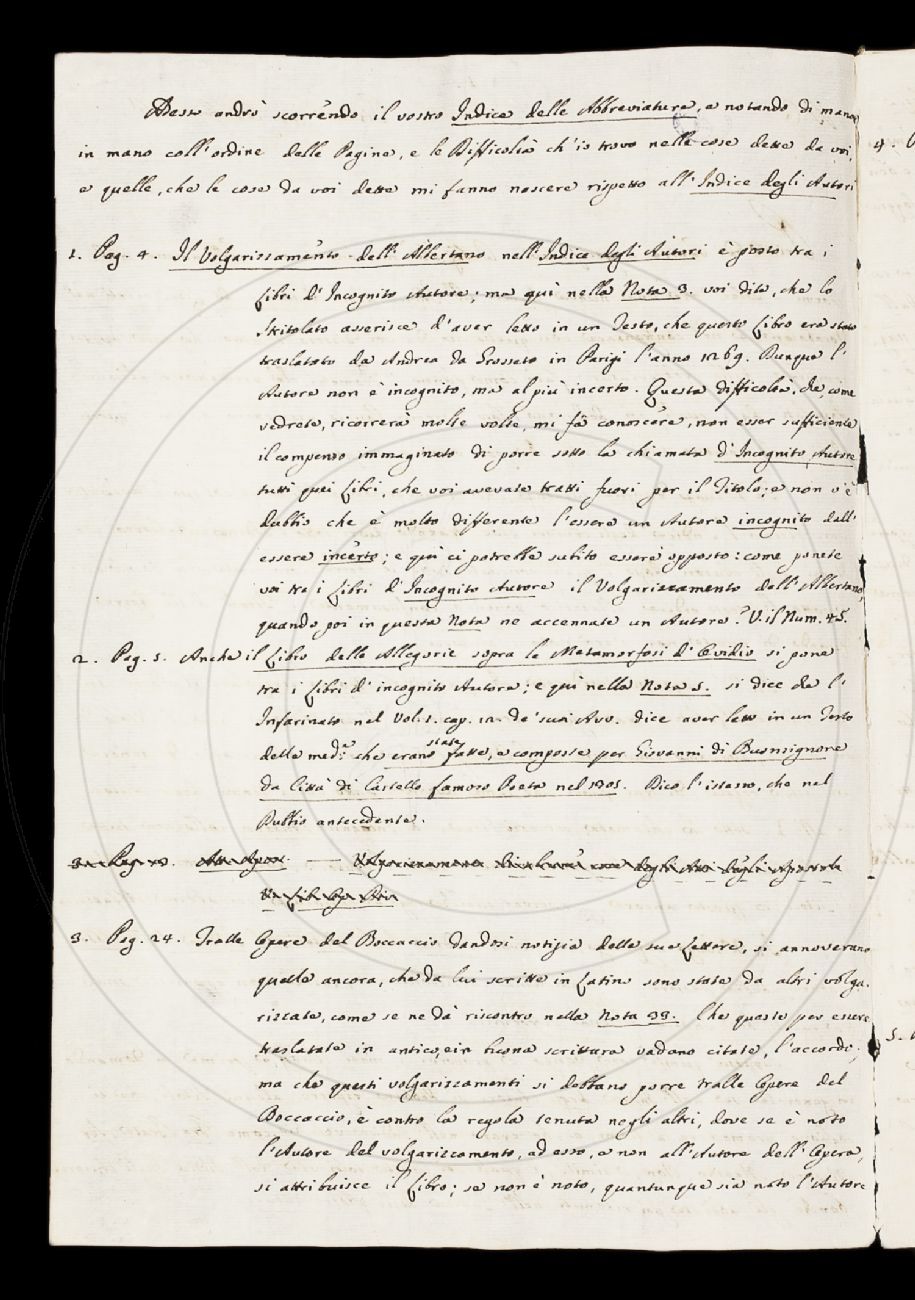 Adesso andrò scorrendo il vostro Indice delle Abbreviature, e notando di mano
in mano coll'ordine delle Pagine, e le Difficoltà ch'io trovo nelle cose dette da voi,
e quelle, che le cose da voi dette mi fanno nascere rispetto all'Indice degli Autori
1. Pag. 4. Il Volgarizzamento dell'Albertano nell'Indice degli Autori è posto tra i
Libri d'Incognito Autore; ma quì nella Nota 3. voi dite, che lo
Stritolato asserisce d'aver letto in un Testo, che questo Libro era stato
traslatato da Andrea da Grosseto in Parigi l'anno 1269. Dunque l'
Autore non è incognito, ma al più incerto. Questa difficoltà, che, come
vedrete, ricorrerà molte volte, mi fà conoscere, non esser sufficiente
il compenso immaginato di porre sotto la chiamata d'Incognito Autore
tutti quei Libri, che voi avevate tratti fuori per il Titolo; e non v'è
dubbio che è molto differente l'essere un Autore incognito dall'
essere incerto; e quì ci potrebbe subito essere opposto: come ponete
voi tra i Libri d'Incognito Autore il Volgarizzamento dell'Albertano,
quando poi in questa Nota ne accennate un Autore? V. il Num. 45.
2. Pag. 5. Anche il Libro delle Allegorie sopra le Metamorfosi d'Ovidio si pone
tra i Libri d'incognito Autore; e quì nella Nota 5. si dice che l'
Infarinato nel Vol. 1. cap. 12. de' suoi Avv. dice aver letto in un Testo
delle med.e che erano state fatte, e composte per Giovanni di Buonsignore
da Città di Castello famoso Poeta nel 1305. Dico l'istesso, che nel
Dubbio antecedente.
3. Pag. 24. Tralle Opere del Boccaccio dandosi notizia delle sue Lettere, si annoverano
quelle ancora, che da lui scritte in Latino sono state da altri volga-
rizzate, come se ne dà riscontro nella Nota 39. Che queste per essere
traslatate in antico, e in buona scrittura vadano citate, l'accordo;
ma che questi volgarizzamenti si debbano porre tralle Opere del
Boccaccio, è contro la regola tenuta negli altri, dove se è noto
l'Autore del volgarizzamento, ad esso, e non all'Autore dell'Opera,
si attribuisce il Libro; se non è noto, quantunque sia noto l'Autore